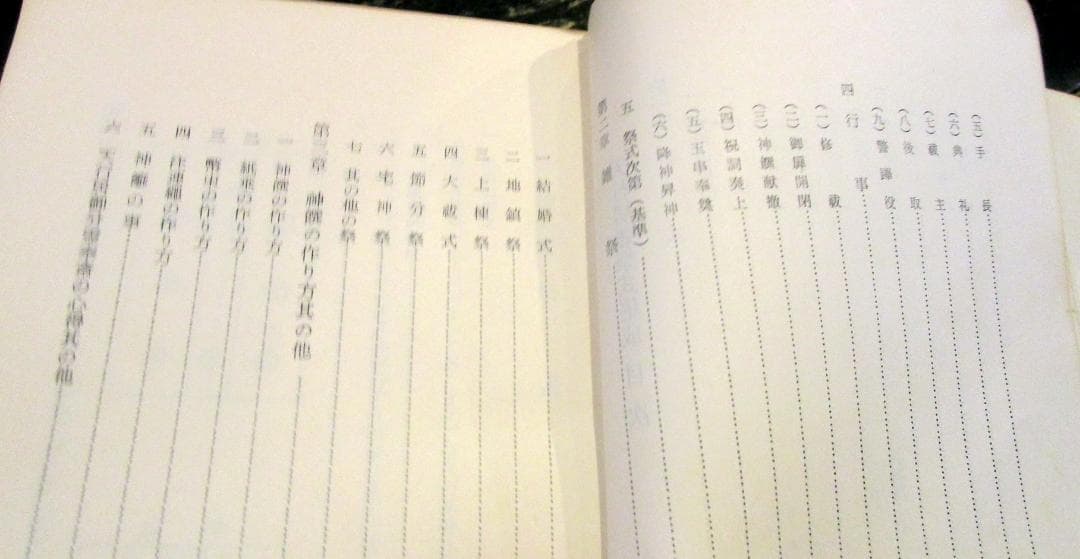 (五)手長
(六)典礼
(七)祓主
(八)後取
(九)警蹕役
四 行事
(一)修祓
(二)御扉開閉
(三)神饌献撤
(四)祝詞奏上
(五)玉串奉奠
(六)降神昇神
五 祭式次第(基準)
第二章 雑祭
一 結婚式
二 地鎮祭
三 上棟祭
四 大祓式
五 節分祭
六 宅神祭
七 其の他の祭
第三章 神饌の作り方其の他
一 神饌の作り方
二 紙垂の作り方
三 幣束の作り方
四 注連縄の作り方
五 神籬の事
六 の心得其の他